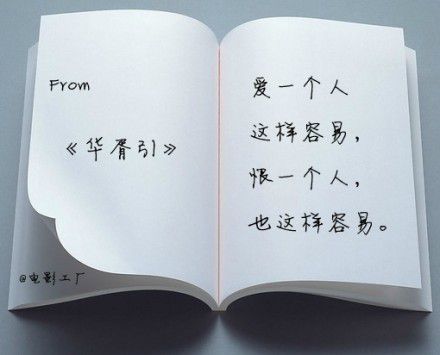 From
《华胥引》
@电影工厂
爱一个人
这样容易，
恨一个人，
也这样容易。